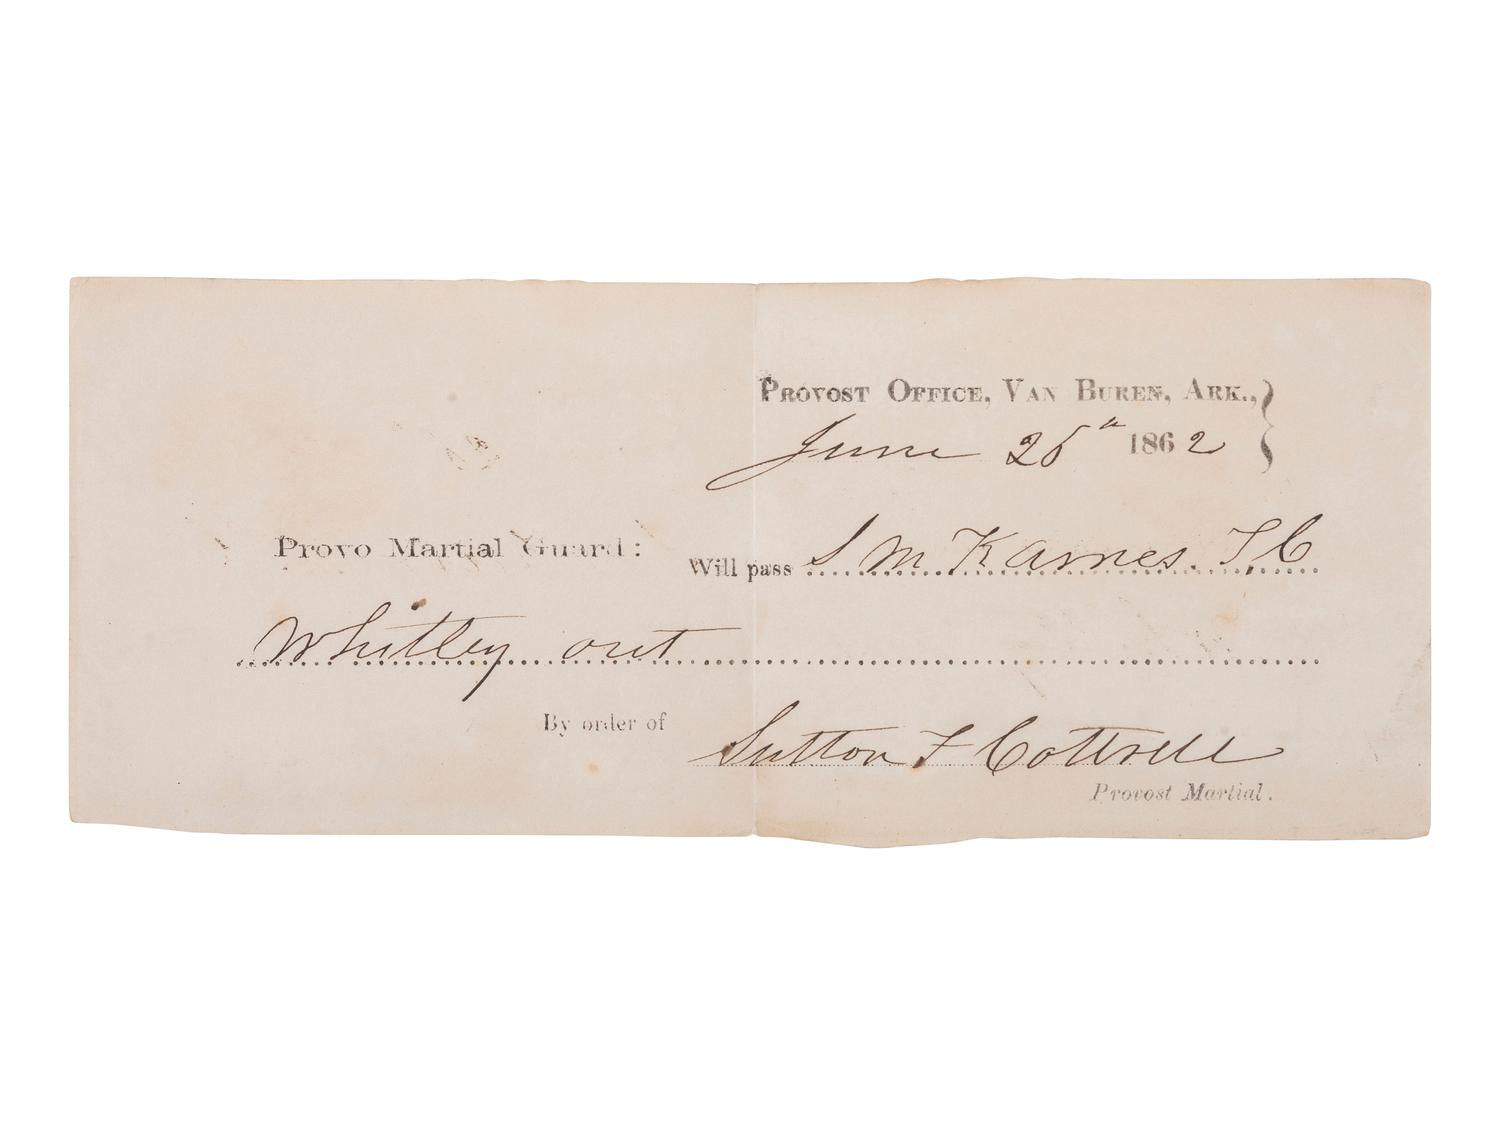 PROVOST OFFICE, VAN BUREN, ARK.,
June 25th 1862
Provo Martial Guard:
Will pass S M Karnes. T, C
Whitley out
By order of Sutton F Cottrell
Provost Martial.